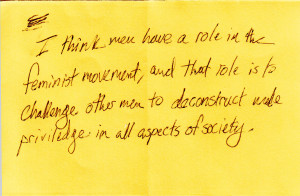 I think men have a role in the
feminist movement, and that role is to
challenge other men to deconstruct male
priviledge in all aspects of society.